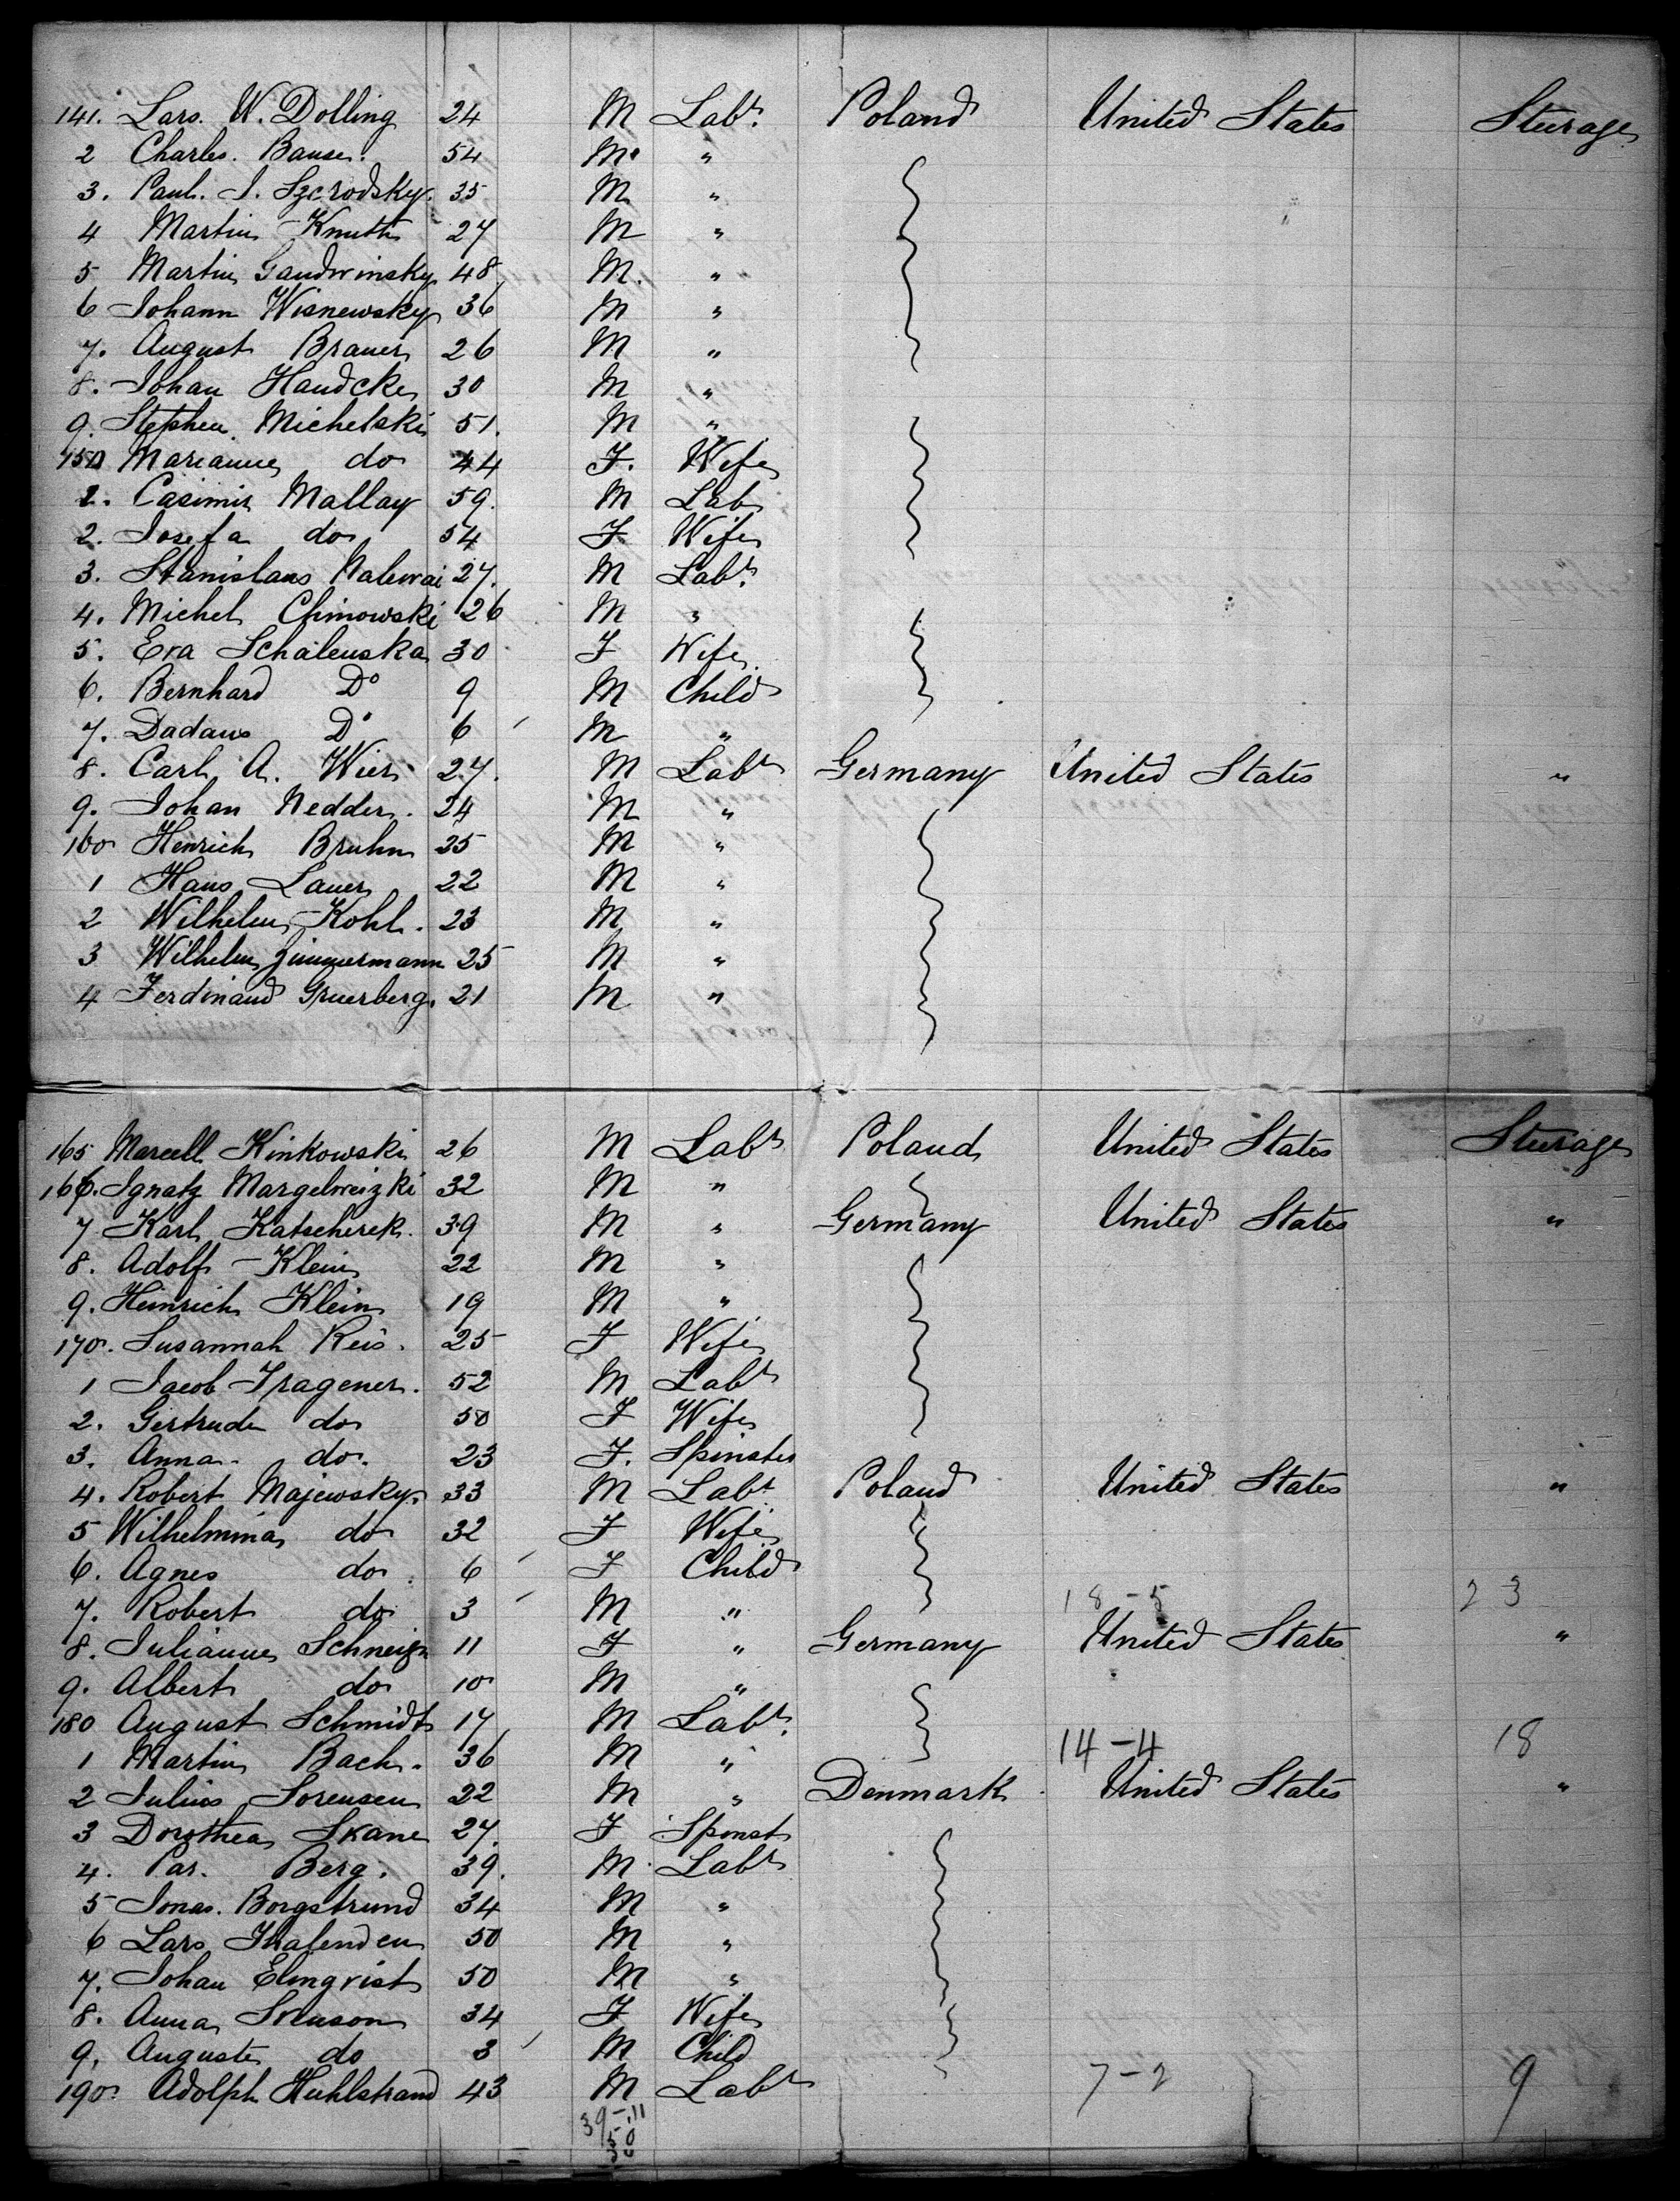 141. Lars. W. Dolling 24 M Labr. Poland United States Steerage
2 Charles. Bauser. 54 M. "
3. Paul. I. Szcrodsky. 35 M "
4 Martin Knuth 27 M "
5 Martin Gaudwinsky 48 M. "
6 Johann Wisnewsky 36 M "
7. August Brauer 26 M "
8. Johan Haudcke 30 M "
9. Stephen Michelski 51. M "
150 Marianne do 44 F. Wife
1. Casimir Mallay 59. M Lab
2. Josefa do 54 F Wife
3. Stanislaus Nalewai 27. M Labr.
4. Michel Chinowski 26 M "
5. Eva Schalenska 30 F Wife
6. Bernhard Do 9 M Child
7. Dadaus Do 6 M "
8. Carl A. Wier 27. M Labr Germany United States "
9. Johan Nedder. 24 M "
160 Henrich Bruhn 25 M "
1 Hans Lauer 22 M "
2 Wilhelm Kohl. 23 M "
3 Wilhelm Zimmermann 25 M "
4 Ferdinand Gruerberg. 21 M "
165 Marcell Kinkowski 26 M Labr Poland United States Steerage
166. Ignatz Margelweizki 32 M "
7 Karl Katscherek. 39 M " Germany United States "
8. Adolf Klein 22 M "
9. Heinrich Klein 19 M "
170. Susannah Reis. 25 F Wife
1 Jacob Tragener. 52 M Labr
2. Gertrude do 50 F Wife
3. Anna. do. 23 F. Spinster
4. Robert Majewsky. 33 M Labr Poland United States "
5 Wilhelmina do 32 F Wife
6. Agnes do 6 F Child
7. Robert do 3 M " 18-5 23
8. Julianne 11 F " Germany United States "
9. Albert do 10 M "
180 August Schmidt 17 M Labr.
1 Martin Bach. 36 M " 14-4 18
2 Julius Sorensen 22 M " Denmark United States "
3 Dorothea Skane 27. F Spinst
4. Par. Berg. 39. M Labr
5 Jonas. Borgstrund 34 M "
6 Lars 50 M "
7. Johan Elmqvist 50 M "
8. Anna Svenson 34 F Wife
9. Auguste do 3 M Child
190. Adolph Huhlstrand 43 M Labr 7-2 9
39-11
50